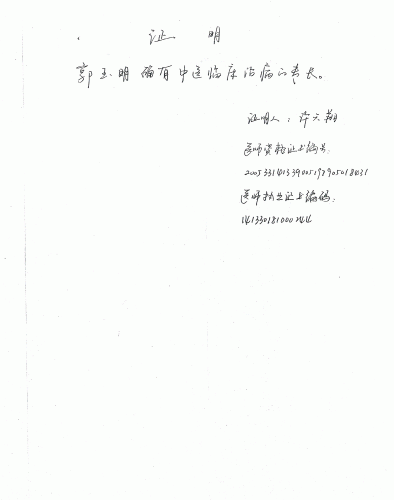 证 明
郭玉明 确有中医临床治病的专长。
证明人：许天翔
医师资格证书编号：
医师执业证书编码：